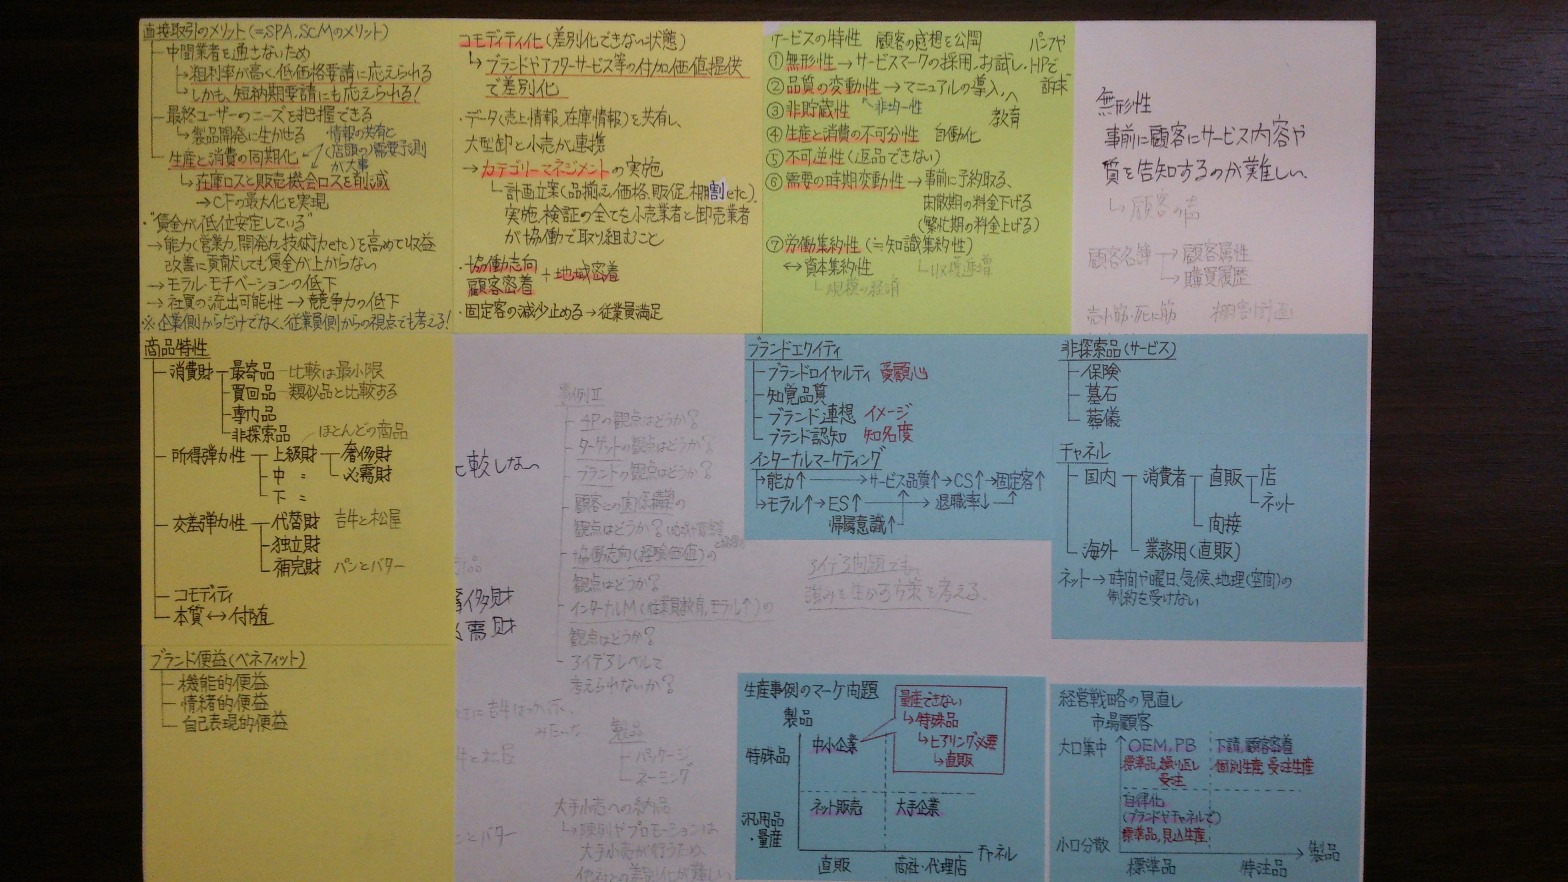 直接取引のメリット(=SPA、SCMのメリット)
中間業者を通さないため
↳粗利率が高く、低価格要請に応えられる
↳しかも、短納期要請にも応えられる!
最終ユーザーのニーズを把握できる
↳製品開発に生かせる
情報の共有と
(店頭の)需要予測
が大事
生産と消費の同期化
↳在庫ロスと販売機会ロスを削減
→CFの最大化を実現
・"賃金が低位安定している"
→能力(営業力、開発力、技術力etc)を高めて収益
改善に貢献しても賃金が上がらない
→モラル、モチベーションの低下
→社員の流出可能性→競争力の低下
※企業側からだけでなく、従業員側からの視点でも考える!
コモディティ化(差別化できない状態)
↳ブランドやアフターサービス等の付加価値提供
で差別化
・データ(売上情報、在庫情報)を共有し、
大型卸と小売が連携
→カテゴリーマネジメントの実施
↳計画立案(品揃え、価格、販促、棚割etc)、
実施、検証の全てを小売業者と卸売業者
が協働で取り組むこと
・協働志向
顧客密着
+地域密着
・固定客の減少止める→従業員満足
サービスの特性 顧客の感想を公開
パンフや
HPで
訴求
①無形性→サービスマークの採用、お試し、
②品質の変動性→マニュアルの導入、
教育
③非貯蔵性
非均一性
④生産と消費の不可分性 自働化
⑤不可逆性(返品できない)
⑥需要の時期変動性→事前に予約取る、
閑散期の料金下げる
(繁忙期の料金上げる)
⑦労働集約性(≒知識集約性)
↔資本集約性
↳収穫逓増
↳規模の経済
無形性
事前に顧客にサービス内容や
質を告知するのが難しい。
↳顧客の声
顧客名簿→顧客属性
→購買履歴
売れ筋・死に筋 棚割計画
商品特性
消費財
最寄品―比較は最小限
買回品―類似品と比較する
専門品
非探索品
ほとんどの商品
所得弾力性
上級財
奢侈財
必需財
中 〃
下 〃
交差弾力性
代替財 吉牛と松屋
独立財
補完財 パンとバター
コモディティ
本質↔付随
ブランド便益(ベネフィット)
機能的便益
情緒的便益
自己表現的便益
比較しな〜
奢侈財
必需財
事例Ⅱ
4Pの観点はどうか?
ターゲットの観点はどうか?
ブランドの観点はどうか?
顧客との関係構築の
観点はどうか?
協働志向(経験価値)の
観点はどうか?
インターナルM(従業員教育、モラル↑)の
観点はどうか?
アイデアレベルで
考えられないか?
製品
パッケージ
ネーミング
牛と松屋
ンとバター
大手小売への納品
↳陳列やプロモーションは
大手小売が行うため、
他社との差別化が難しい
ブランドエクイティ
ブランドロイヤルティ 愛顧心
知覚品質
ブランド連想 イメージ
ブランド認知 知名度
インターナルマーケティング
→能力↑→サービス品質↑→CS↑→固定客↑
→モラル↑→ES↑→退職率↓
帰属意識↑
アイデア問題でも、
強みを生かす方策を考える。
非探索品(サービス)
保険
墓石
葬儀
チャネル
国内
消費者
直販
店
ネット
間接
業務用(直販)
海外
ネット→時間や曜日、気候、地理(空間)の
制約を受けない
生産事例のマーケ問題
製品
特殊品
中小企業
量産できない
↳特殊品
↳ヒアリング必要
↳直販
汎用品
・量産
ネット販売
大手企業
直販
商社・代理店
チャネル
経営戦略の見直し
市場顧客
大口集中
OEM、PB
標準品、繰り返し
受注
下請、顧客密着
個別生産、受注生産
自律化
(ブランドやチャネルで)
標準品、見込生産
小口分散
標準品
特注品
製品